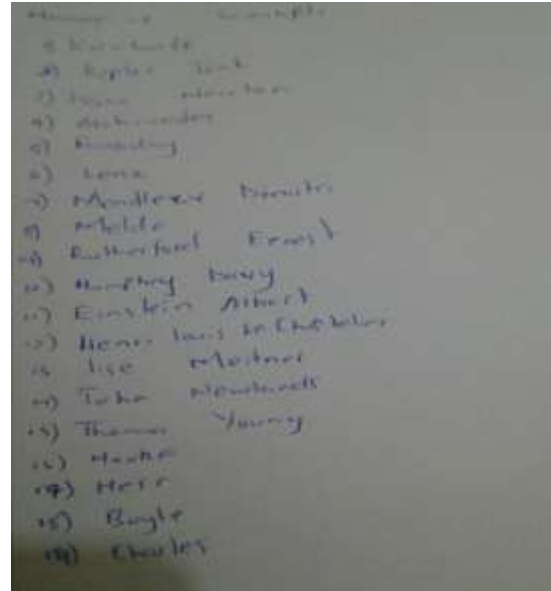 Names of Scientists
2) Kepler
3) Isaac Newton
4) Archimedes
5) Faraday
6) Lenz
7) Mendleev Dimitri
8) Melde
9) Rutherford Ernest
10) Humphry Davy
11) Einstein Albert
12) Henri Louis le Chatelier
13 lise Meitner
14) John Newlands
15) Thomas Young
16) Hooke
17) Hess
18) Boyle
19) Charles